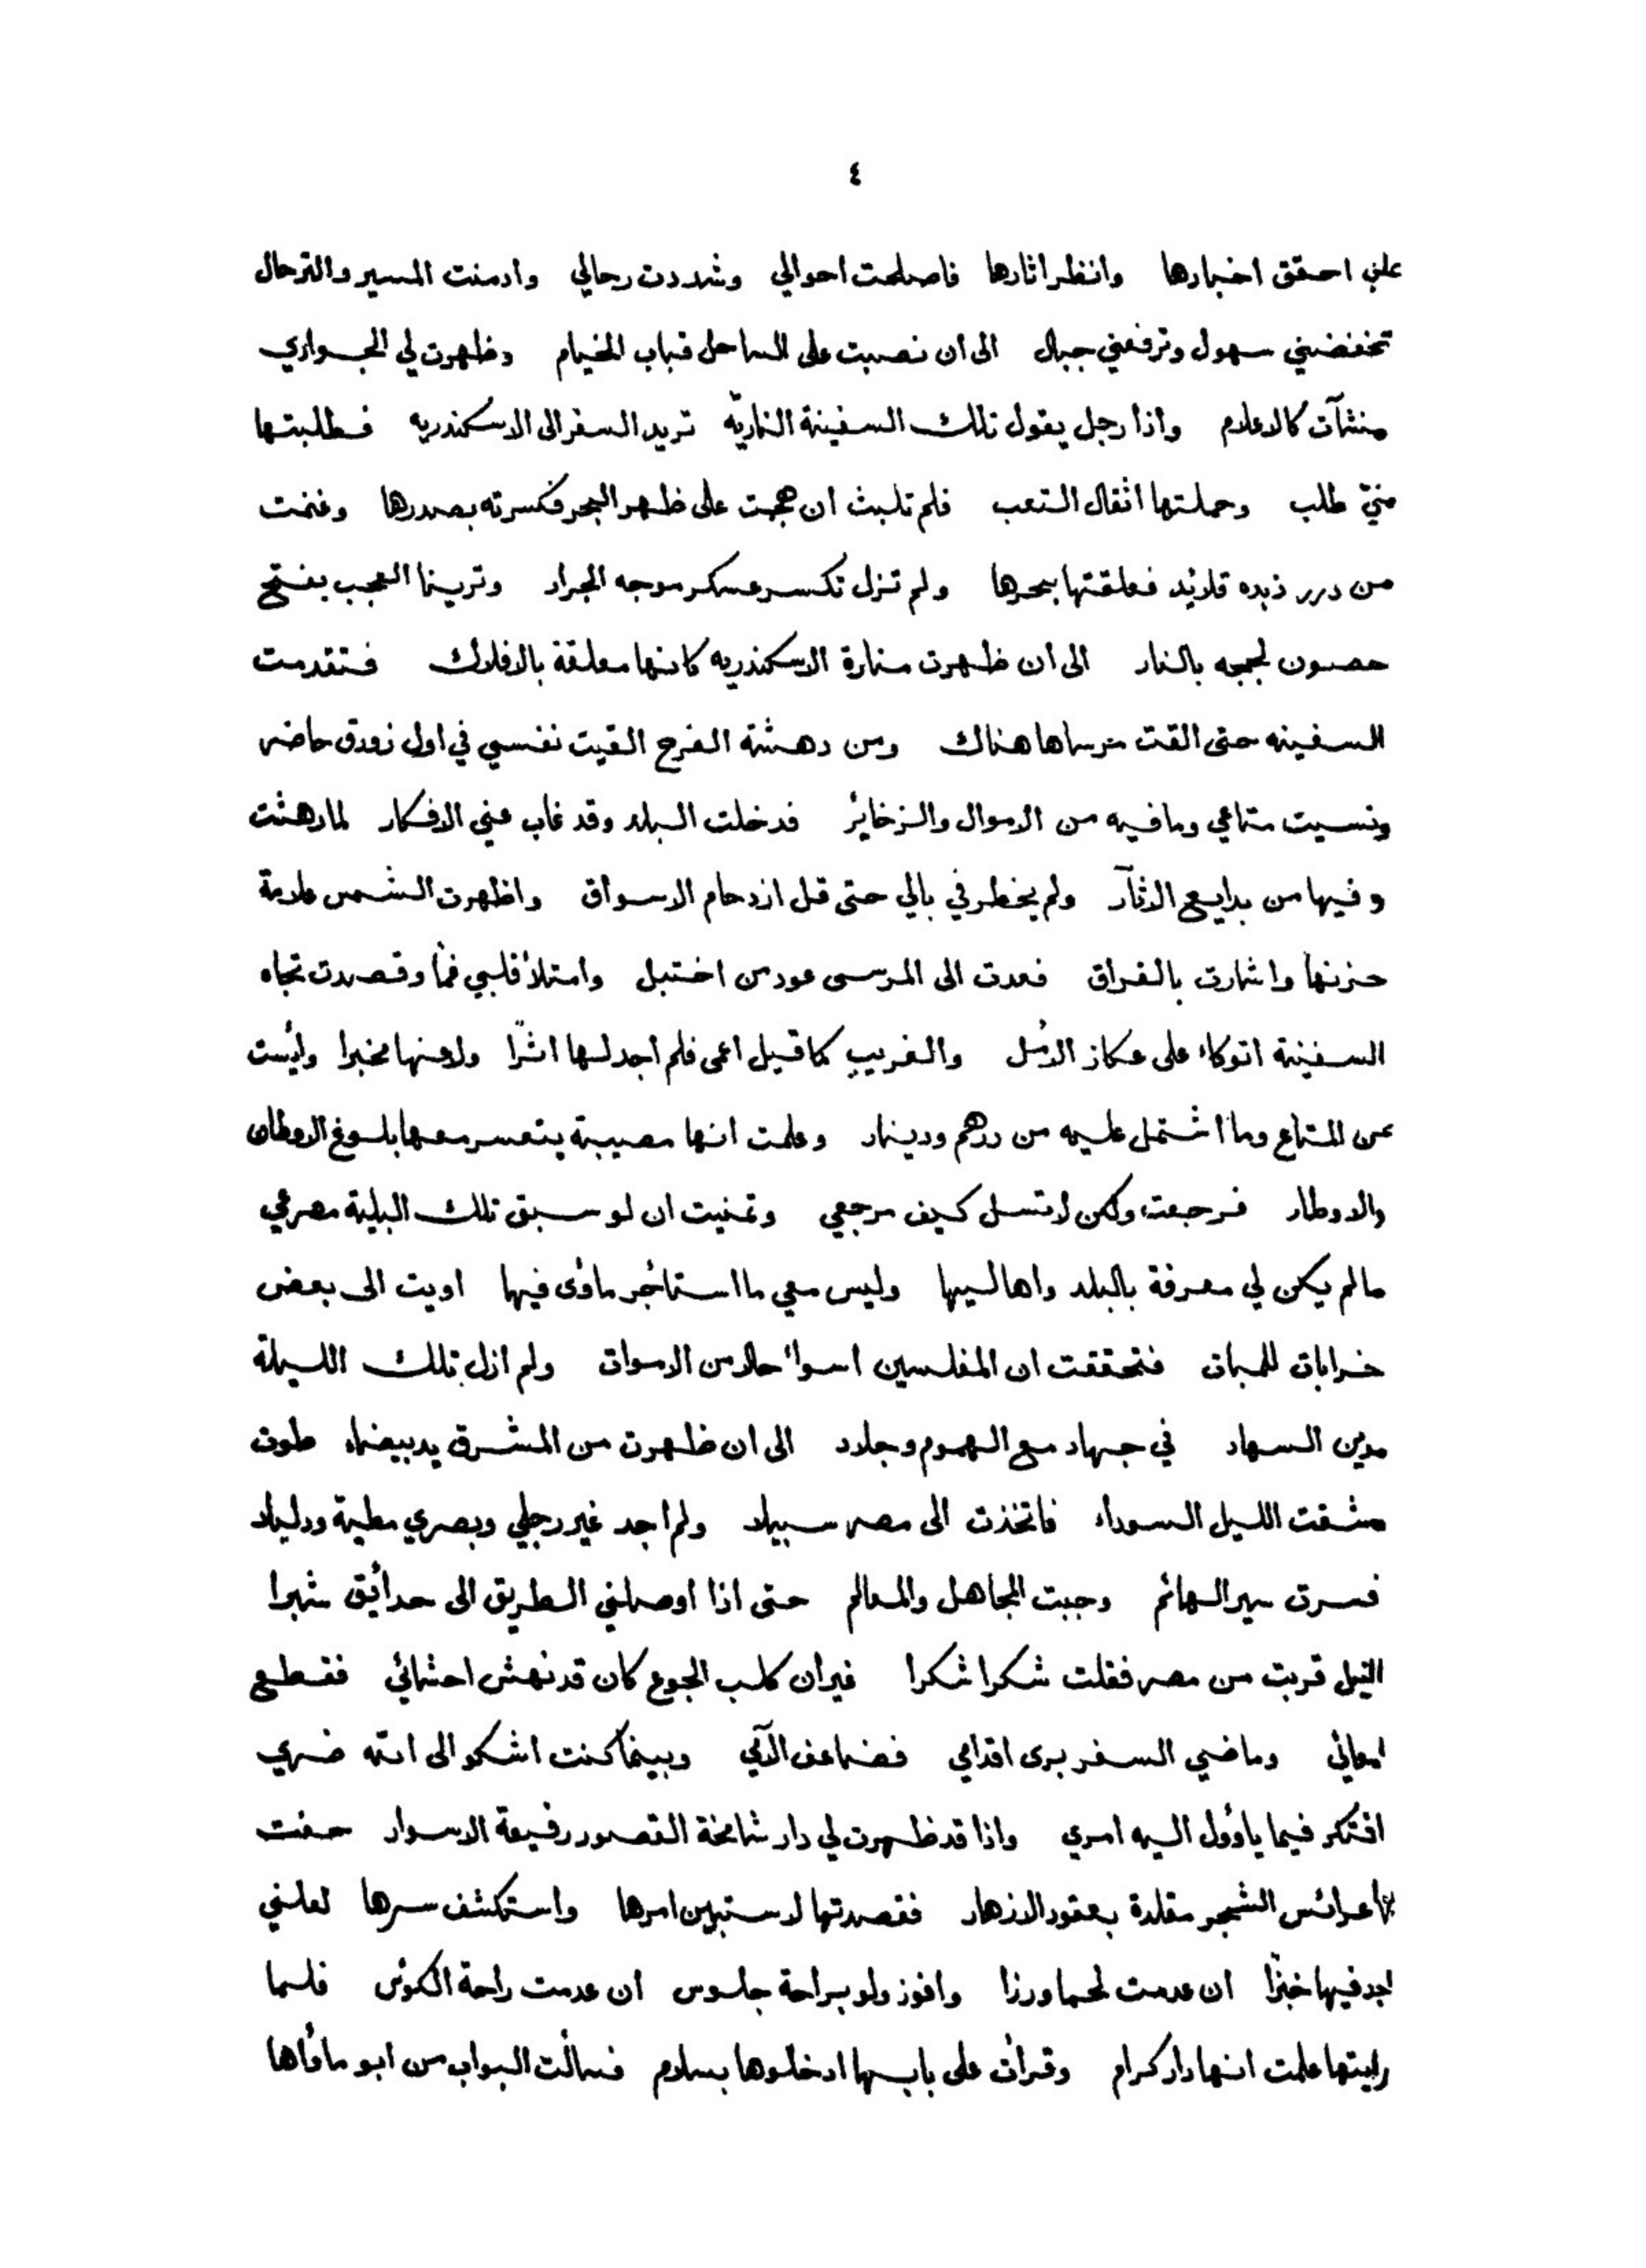 ٤
علي احقق اخبارها وانظر اثارها فاصلحت احوالي وشددت رحالي وادمنت المسير والترحال
تخفضني سهول وترفعني جبال الى ان نصبت على الساحل قباب الخيام وظهرت لي الجواري
منشآت كالاعلام واذا رجل يقول تلك السفينة الناريّه تريد السفر الى الاسكندريه فطلبتها
منيّ طلب وحملتها اثقال التعب فلم تلبث ان هجمت على ظهر البحر فكسرته بصدرها وغنمت
من درر زبده قلائد فعلقتها بنحرها ولم تزل تكسر عسكر موجه الجرار وترينا العجب بفتح
حصون لججه بالنار الى ان ظهرت منارة الاسكندريه كانها معلقة بالافلاك فتقدمت
السفينه حتى القت مرساها هناك ومن دهشة الفرح القيت نفسي في اول زورق حاضر
ونسيت متاعي وما فيه من الاموال والزخاير فدخلت البلد وقد غاب عني الافكار لما دهشت
وفيها من بدايع الاثآر ولم يخطر في بالي حتى قل ازدحام الاسواق واظهرت الشمس علامة
حزنها واشارت بالفراق فعدت الى المرسى عود من اختبل وامتلأ قلبي غمّا وقصدت تجاه
السفينة اتوكاء على عكاز الامل والغريب كما قيل اعمى فلم اجد لها اثرًا ولا عنها مخبرا وأيست
عن المتاع وما اشتمل عليه من درهم ودينار وعلمت انها مصيبة يتعسر معها بلوغ الاوطان
والاوطار فرجعت ولكن لا تسل كيف مرجعي وتمنيت ان لو سبق تلك البلية مصرعي
مالم يكن لي معرفة بالبلد واهاليها وليس معي ما استأجر مأوى فيها اويت الى بعض
خرابات للمبات فتحققت ان المفلسين اسوأ حالا من الاموات ولم ازل تلك الليلة
مدين السهاد في جهاد مع الهموم وجلاد الى ان ظهرت من المشرق يد بيضاء طوت
مشقت الليل السوداء فاتخذت الى مصر سبيلا ولم اجد غير رجلي وبصري مطية ودليلا
فسرت سير الهائم وجبت المجاهل والمعالم حتى اذا اوصلني الطريق الى حدائق شبرا
النيل قربت من مصر فقلت شكرا شكرا غير ان كلب الجوع كان قد نهش احشائي فقطع
امعائي وماضي السفر برى اقدامي فضاعف الآمي وبينما كنت اشكو الى الله ضري
افتكر فيما ياؤول اليه امري واذا قد ظهرت لي دار شامخة القصور رفيعة الاسوار حفت
بها عرائس الشجر مقلدة بعقود الازهار فقصدتها لاستبين امرها واستكشف سرها لعلني
اجد فيها خبزًا ان عدمت لحما ورزا وافوز ولو براحة جلوس ان عدمت راحة الكؤس فلما
رايتها علمت انها دار كرام وقرأت على بابها ادخلوها بسلام فسألت البواب من ابو مأواها